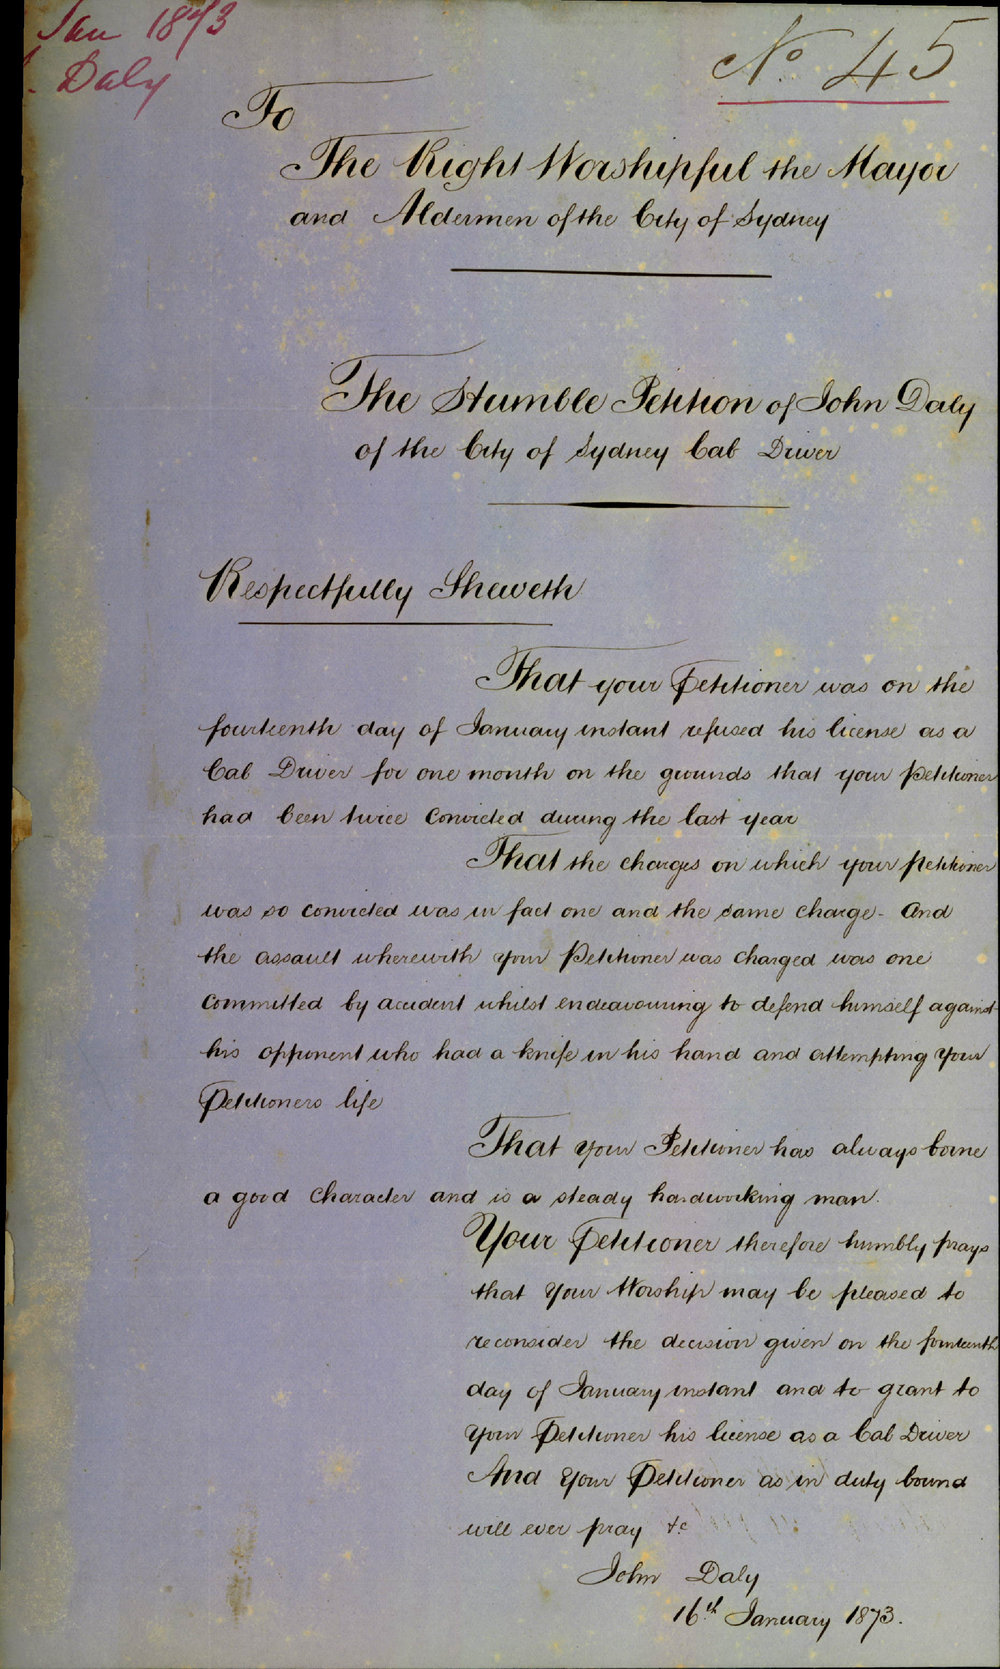 Jan 1873
Daly
No 45
To
The Right Worshipful the Mayor
and Aldermen of the City of Sydney
The Humble Petition of John Daly
of the City of Sydney Cab Driver
Respectfully Sheweth
That your Petitioner was on the
fourteenth day of January instant refused his license as a
Cab Driver for one month on the grounds that your Petitioner
had been twice Convicted during the last year
That the charges on which your Petitioner
was so convicted was in fact one and the same charge - And
the assault wherewith your Petitioner was charged was one
Committed by accident whilst endeavouring to defend himself against
his opponent who had a knife in his hand and attempting your
Petitioners life
That your Petitioner has always borne
a good Character and is a steady hardworking man.
Your Petitioner therefore humbly prays
that Your Worship may be pleased to
reconsider the decision given on the fourteenth
day of January instant and to grant to
your Petitioner his license as a Cab Driver
And Your Petitioner as in duty bound
will ever pray &c
John Daly
16th January 1873.